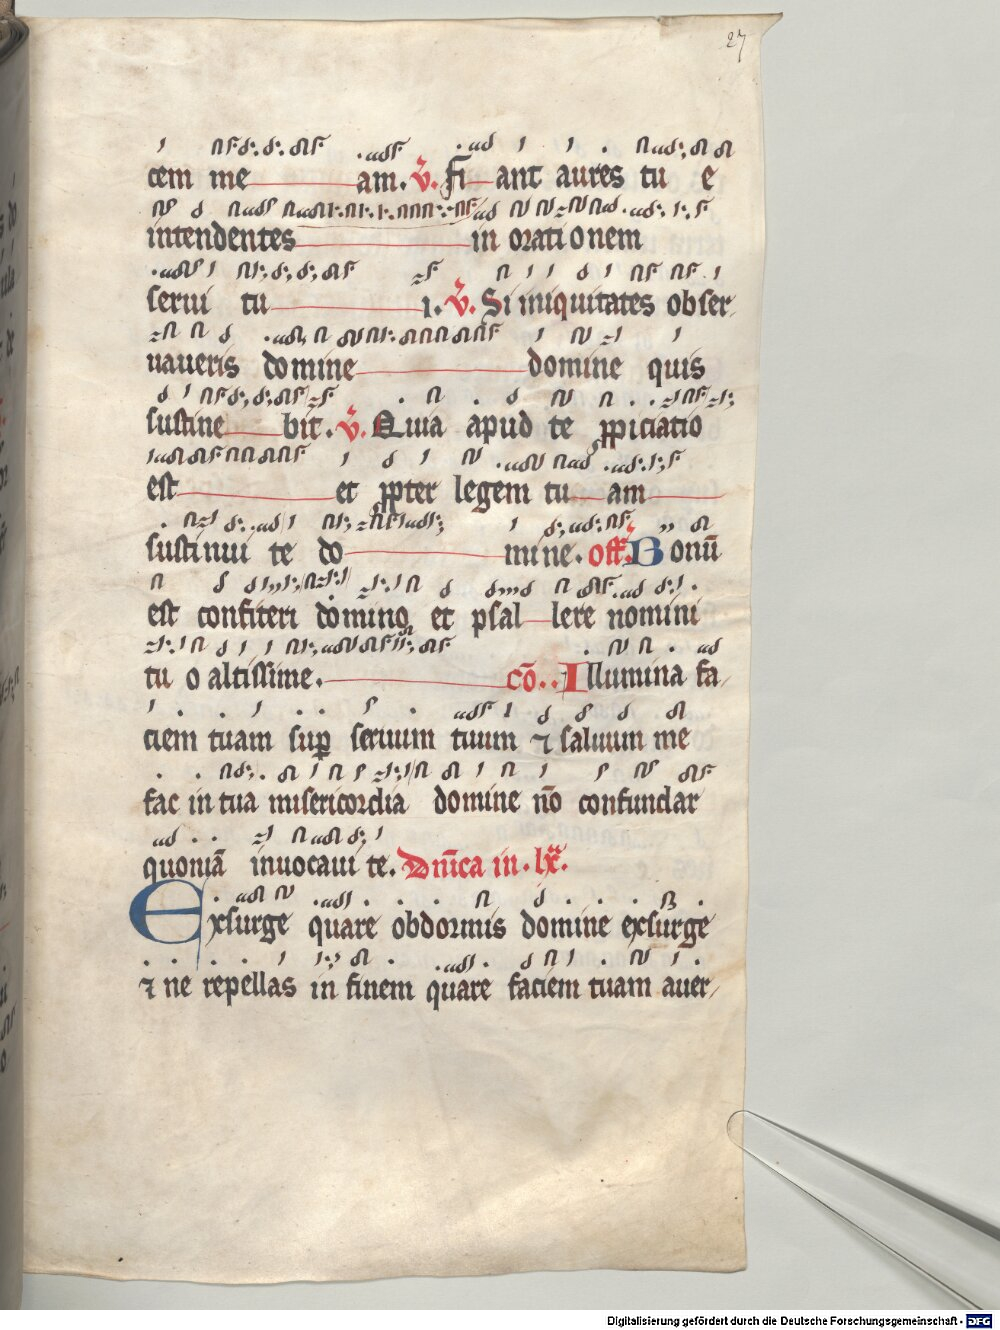 27
cem me am. v̄. Fi ant aures tu e
intendentes in orationem
serui tu i. v̄. Si iniquitates obser
uaueris domine domine quis
sustine bit. v̄. Quia apud te ꝓpiciatio
est et ꝓpter legem tu am
sustinui te do mine. off. Bonū
est confiteri domino et psal lere nomini
tuo altissime. cō. Illumina fa
ciem tuam suꝑ seruum tuum ⁊ saluum me
fac in tua misericordia domine nō confundar
quoniā inuocaui te. Dn̄ica in. lx̄.
Exsurge quare obdormis domine exsurge
⁊ ne repellas in finem quare faciem tuam auer
Digitalisierung gefördert durch die Deutsche Forschungsgemeinschaft - DFG